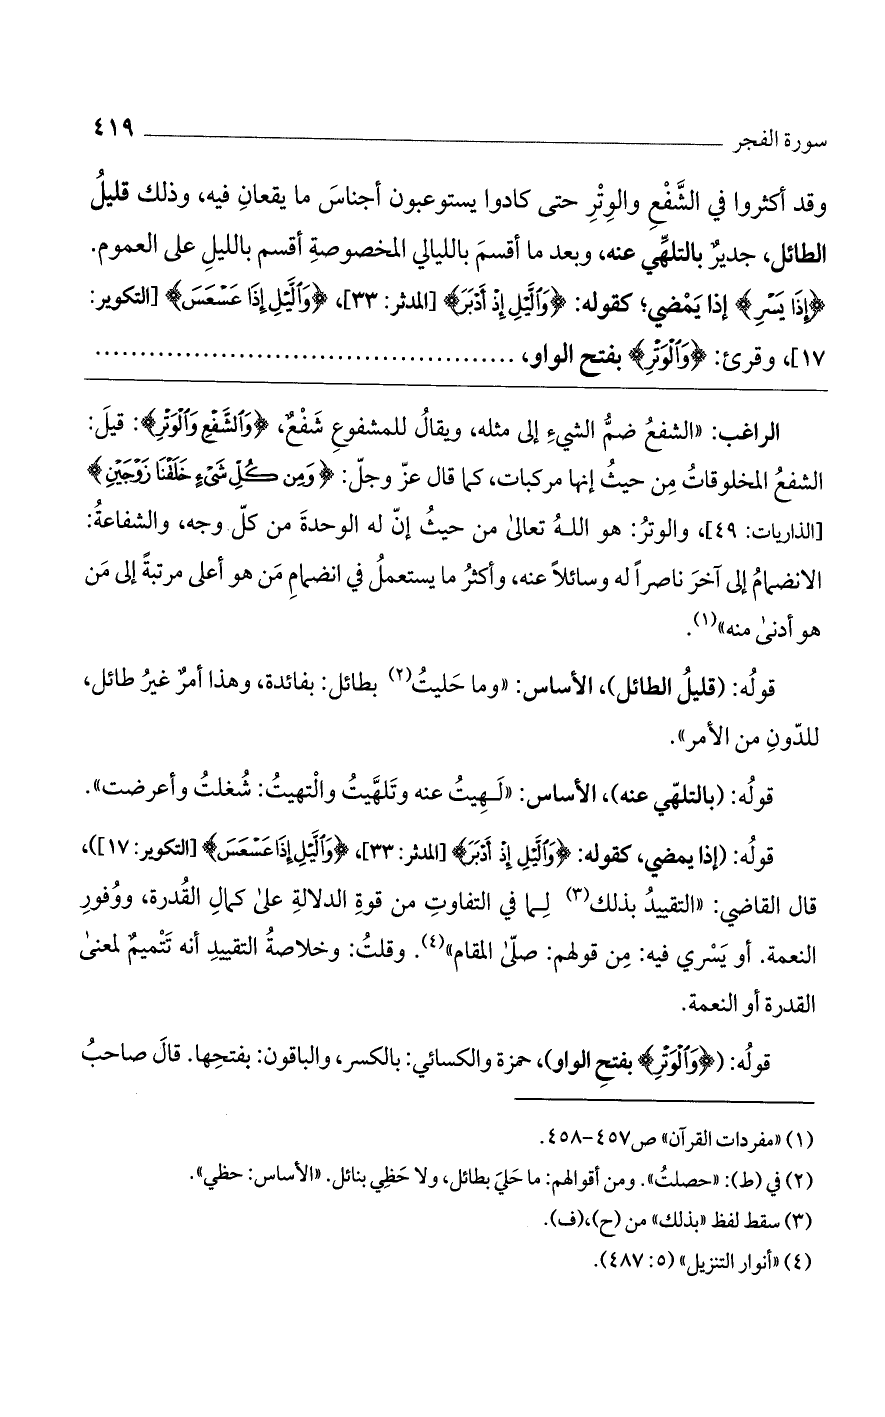 سورة الفجر ٤١٩
وقد أكثروا في الشَّفْعِ والوِتْرِ حتى كادوا يستوعبون أجناسَ ما يقعانِ فيه، وذلك قليلُ
الطائل، جديرٌ بالتلهِّي عنه، وبعد ما أقسمَ بالليالي المخصوصةِ أقسم بالليلِ على العموم.
﴿إِذَا يَسْرِ﴾ إذا يَمْضي؛ كقوله: ﴿وَٱلَّيْلِ إِذْ أَدْبَرَ﴾ [المدثر: ٣٣]، ﴿وَٱلَّيْلِ إِذَا عَسْعَسَ﴾ [التكوير:
١٧]، وقرئ: ﴿وَٱلْوَتْرِ﴾ بفتح الواو، ...............................................
الراغب: «الشفعُ ضمُّ الشيءِ إلى مثله، ويقالُ للمشفوعِ شَفْعٌ، ﴿وَٱلشَّفْعِ وَٱلْوَتْرِ﴾: قيلَ:
الشفعُ المخلوقاتُ مِن حيثُ إنها مركبات، كما قال عزّ وجلّ: ﴿وَمِن كُلِّ شَىْءٍ خَلَقْنَا زَوْجَيْنِ﴾
[الذاريات: ٤٩]، والوترُ: هو اللهُ تعالىٰ من حيثُ إنّ له الوحدةَ من كلّ وجه، والشفاعةُ:
الانضمامُ إلى آخرَ ناصراً له وسائلاً عنه، وأكثرُ ما يستعملُ في انضمامِ مَن هو أعلى مرتبةً إلى مَن
هو أدنىٰ منه»(١).
قولُه: (قليلُ الطائل)، الأساس: «وما حَليتُ(٢) بطائل: بفائدة، وهذا أمرٌ غيرُ طائل،
للدّونِ من الأمر».
قولُه: (بالتلهّي عنه)، الأساس: «لَـهِيتُ عنه وتَلهَّيتُ والْتهيتُ: شُغلتُ وأعرضت».
قولُه: (إذا يمضي، كقوله: ﴿وَٱلَّيْلِ إِذْ أَدْبَرَ﴾ [المدثر: ٣٣]، ﴿وَٱلَّيْلِ إِذَا عَسْعَسَ﴾ [التكوير: ١٧])،
قال القاضي: «التقييدُ بذلك(٣) لِـما في التفاوتِ من قوةِ الدلالةِ علىٰ كمالِ القُدرة، ووُفورِ
النعمة. أو يَسْري فيه: مِن قولهم: صلّىٰ المقام»(٤). وقلتُ: وخلاصةُ التقييدِ أنه تَتْميمٌ لمعنىٰ
القدرة أو النعمة.
قولُه: (﴿وَٱلْوَتْرِ﴾ بفتحِ الواو)، حمزة والكسائي: بالكسر، والباقون: بفتحِها. قالَ صاحبُ
(١) «مفردات القرآن» ص٤٥٧-٤٥٨.
(٢) في (ط): «حصلتُ». ومن أقوالهم: ما حَلِيَ بطائل، ولا حَظِي بنائل. «الأساس: حظي».
(٣) سقط لفظ «بذلك» من (ح)،(ف).
(٤) «أنوار التنزيل» (٥: ٤٨٧).